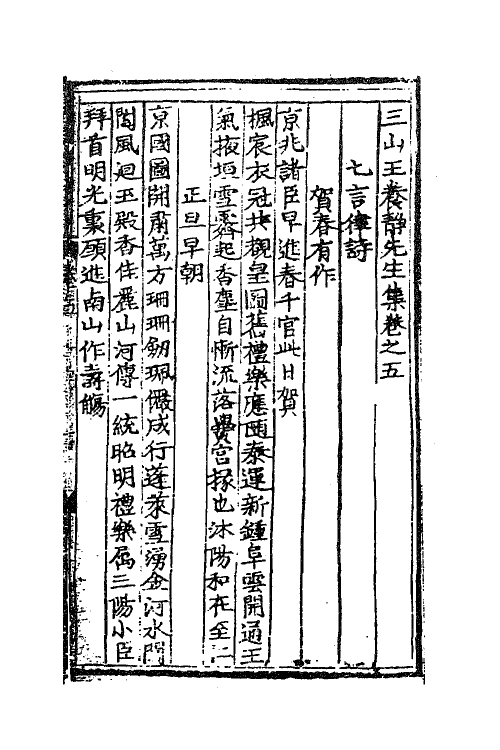 三山王養靜先生集卷之五
七言律詩
賀春有作
京兆諸臣早進春千官此日賀
楓宸衣冠共覩皇圖舊禮樂應隨泰運新鍾阜雲開通王
氣掖垣雪霽起香塵自慚流落黌宮掾也沐陽和在至仁
正旦早朝
京國圖開肅萬方珊珊劒珮儼成行蓬萊雪湧金河水閶
闔風廻玉殿香佳麗山河傳一統昭明禮樂屬三陽小臣
拜首明光裏願進南山作壽觴